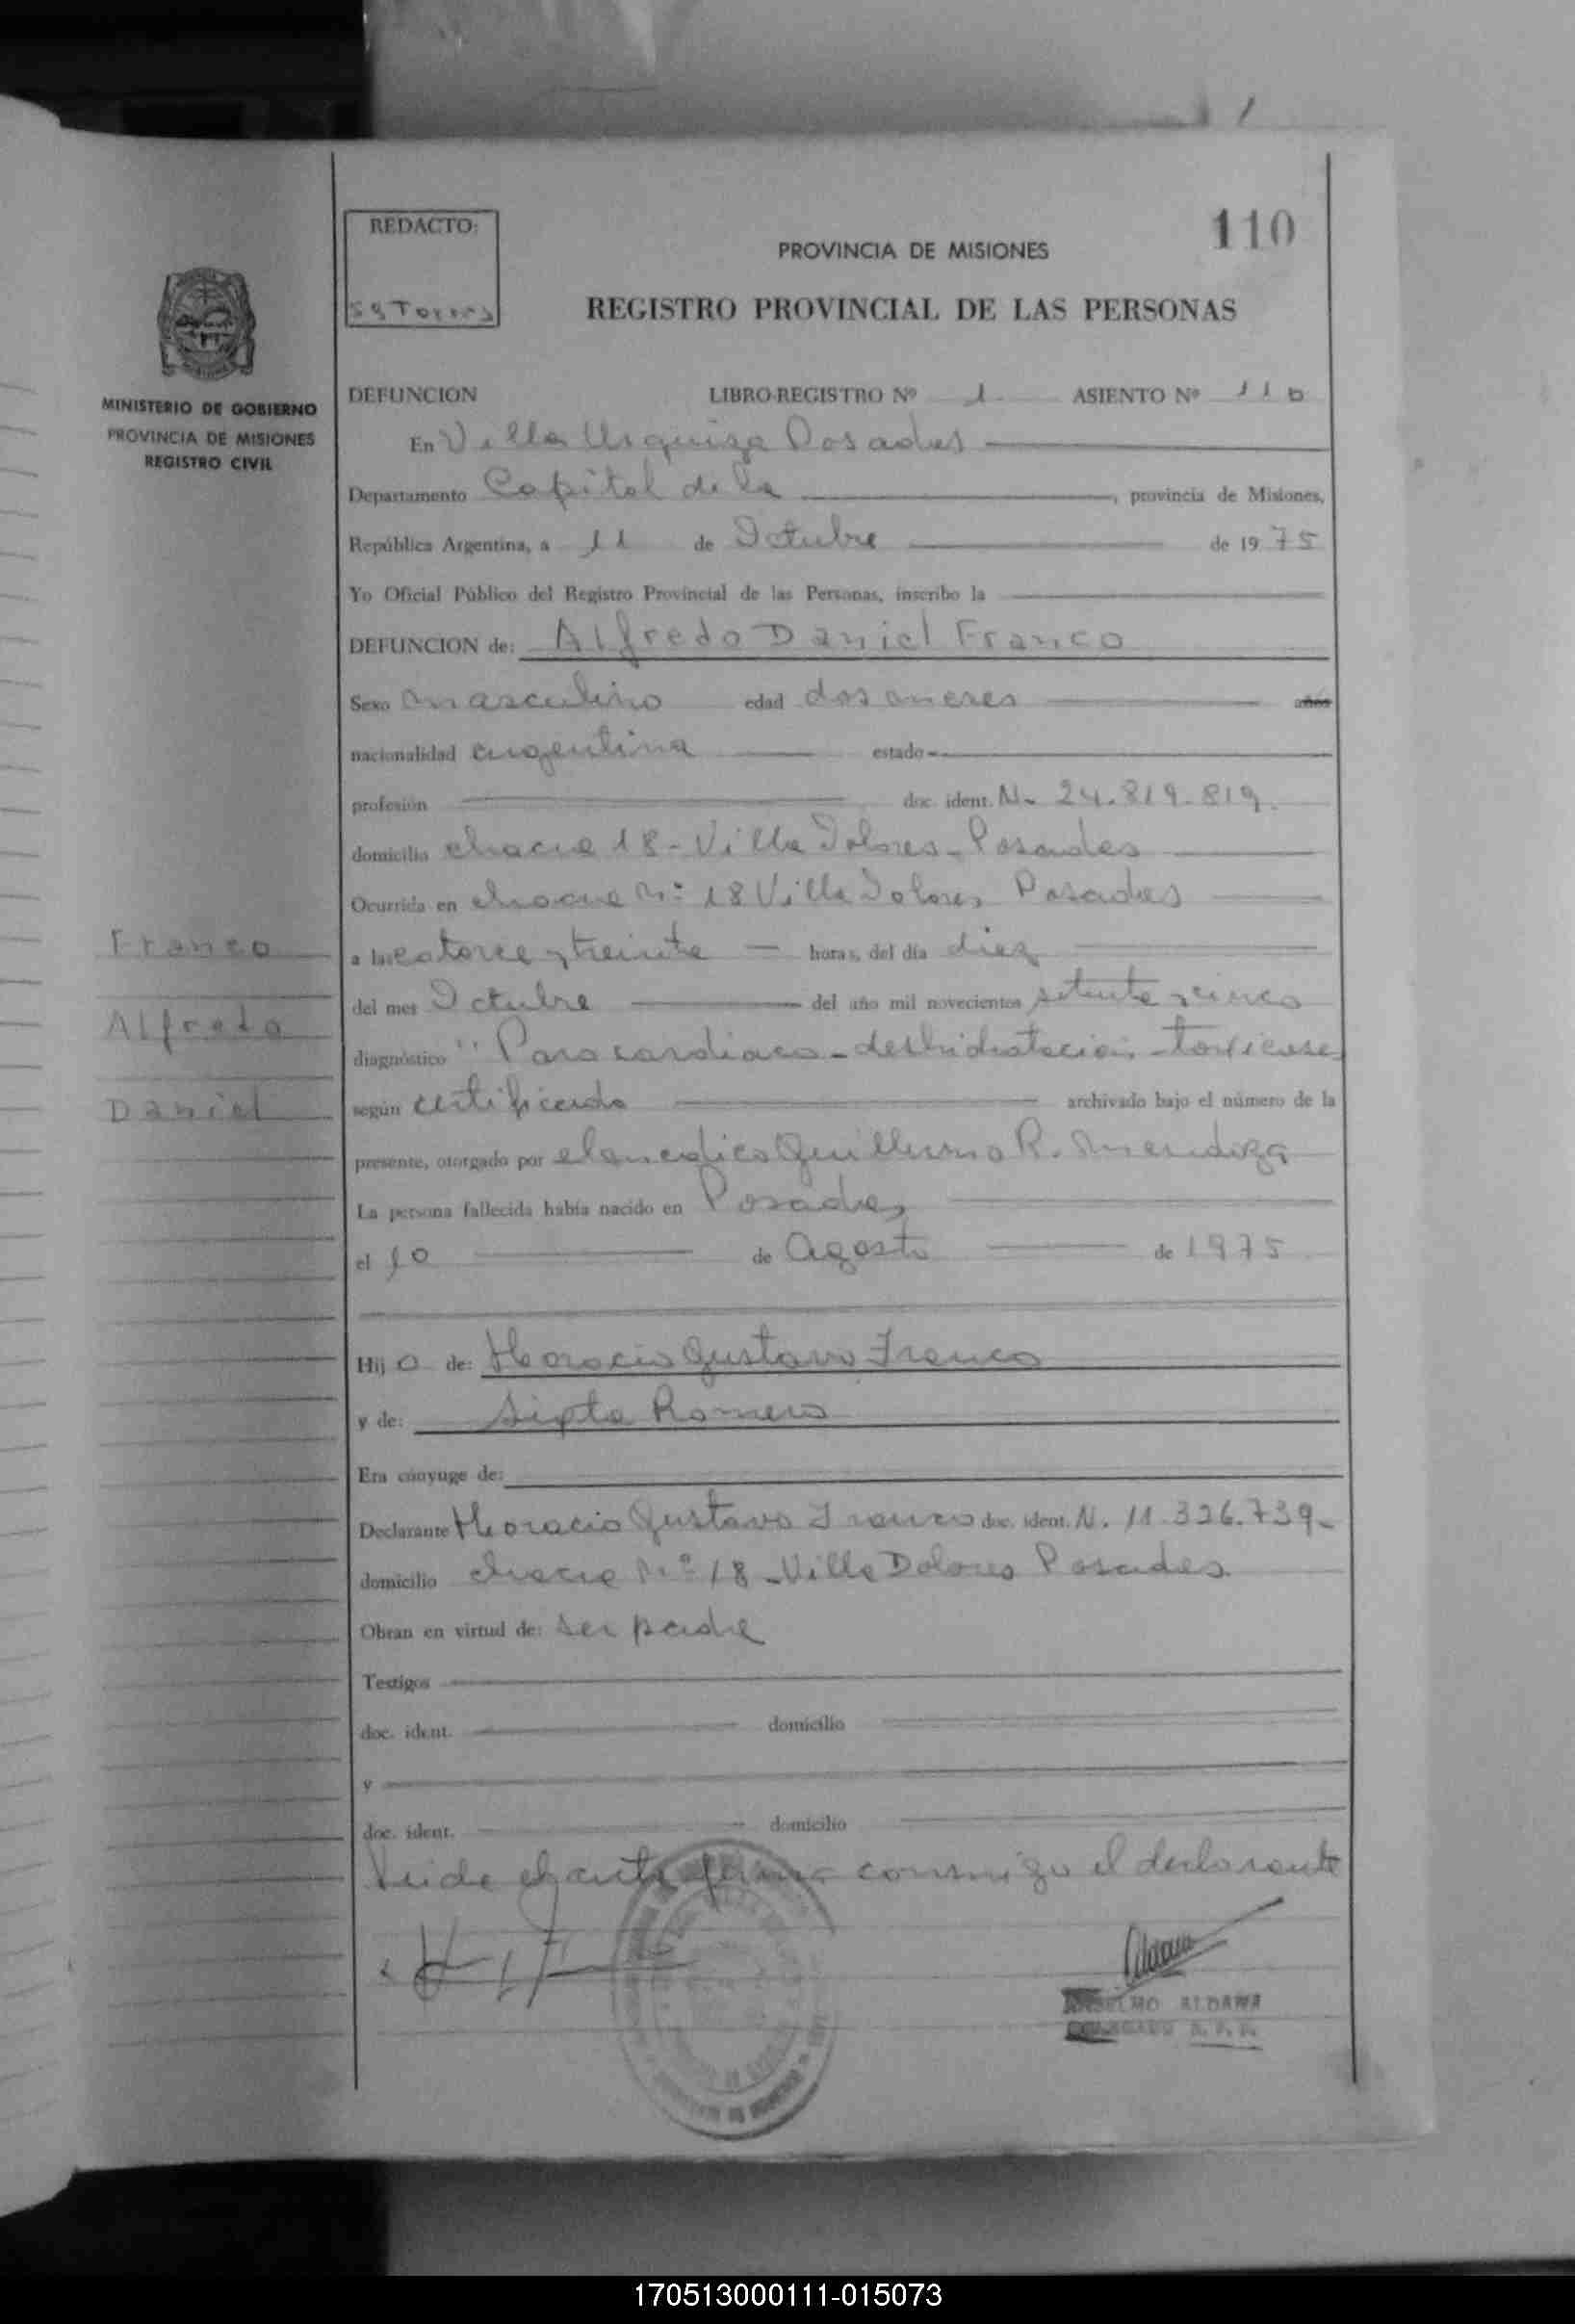 REDACTO:
110
PROVINCIA DE MISIONES
REGISTRO PROVINCIAL DE LAS PERSONAS
MINISTERIO DE GOBIERNO
PROVINCIA DE MISIONES
REGISTRO CIVIL
DEFUNCION LIBRO-REGISTRO Nº 1 ASIENTO Nº 110
En Villa Urquiza Posadas
Departamento Capital de la , provincia de Misiones,
República Argentina, a 11 de Octubre de 1975
Yo Oficial Público del Registro Provincial de las Personas, inscribo la
DEFUNCION de: Alfredo Daniel Franco
Sexo masculino edad dos meses años
nacionalidad argentina estado
profesión doc. ident. N. 24.819.819.
domicilio chacra 18 - Villa Dolores - Posadas
Ocurrida en chacra Nº 18 Villa Dolores Posadas
a las catorce y treinta horas, del día diez
del mes Octubre del año mil novecientos setenta y cinco
diagnóstico "Paro cardiaco - deshidratación - toxicose
según certificado archivado bajo el número de la
presente, otorgado por el medico Guillermo R. Mendoza
La persona fallecida había nacido en Posadas
el 10 de Agosto de 1975
Franco
Alfredo
Daniel
Hijo de: Horacio Gustavo Franco
y de: Sixta Romero
Era cónyuge de:
Declarante Horacio Gustavo Franco doc. ident. N. 11.326.739-
domicilio chacra Nº 18 - Villa Dolores Posadas
Obran en virtud de: ser padre
Testigos
doc. ident. domicilio
y
doc. ident. domicilio
Leida el acta firma conmigo el declarante
170513000111-015073